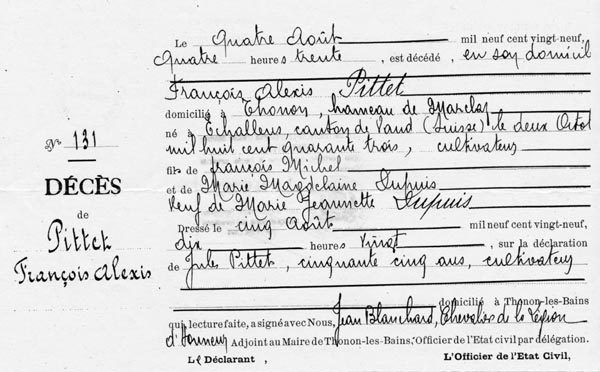 N° 131
DÉCÈS
de
Pittet
François Alexis
Le quatre Août mil neuf cent vingt-neuf,
quatre heures trente, est décédé, en son domicil
François Alexis Pittet
domicilié à Thonon, hameau de Marclaz
né à Echallens, canton de Vaud (Suisse) le deux Octob
mil huit cent quarante trois, cultivateur
fils de françois Michel
et de Marie Magdelaine Dupuis
Veuf de Marie Jeannette Dupuis
Dressé le cinq Août mil neuf cent vingt-neuf,
dix heures vingt, sur la déclaration
de Jules Pittet, cinquante cinq ans, cultivateur
domicilié à Thonon-les-Bains
qui, lecture faite, a signé avec Nous, Jean Blanchard, Chevalier de la Légion
d'Honneur Adjoint au Maire de Thonon-les-Bains, Officier de l'Etat civil par délégation.
Le Déclarant, L'Officier de l'Etat Civil,